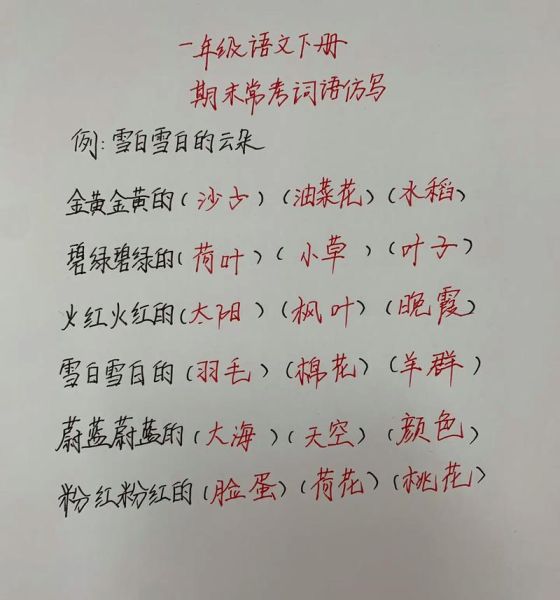 一年级语文下册
期末常考词语仿写
例:雪白雪白的云朵
金黄金黄的(沙子)(油菜花)(水稻)
碧绿碧绿的(荷叶)(小草)(叶子)
火红火红的(太阳)(枫叶)(晚霞)
雪白雪白的(羽毛)(棉花)(羊群)
蔚蓝蔚蓝的(大海)(天空)(颜色)
粉红粉红的(脸蛋)(荷花)(桃花)